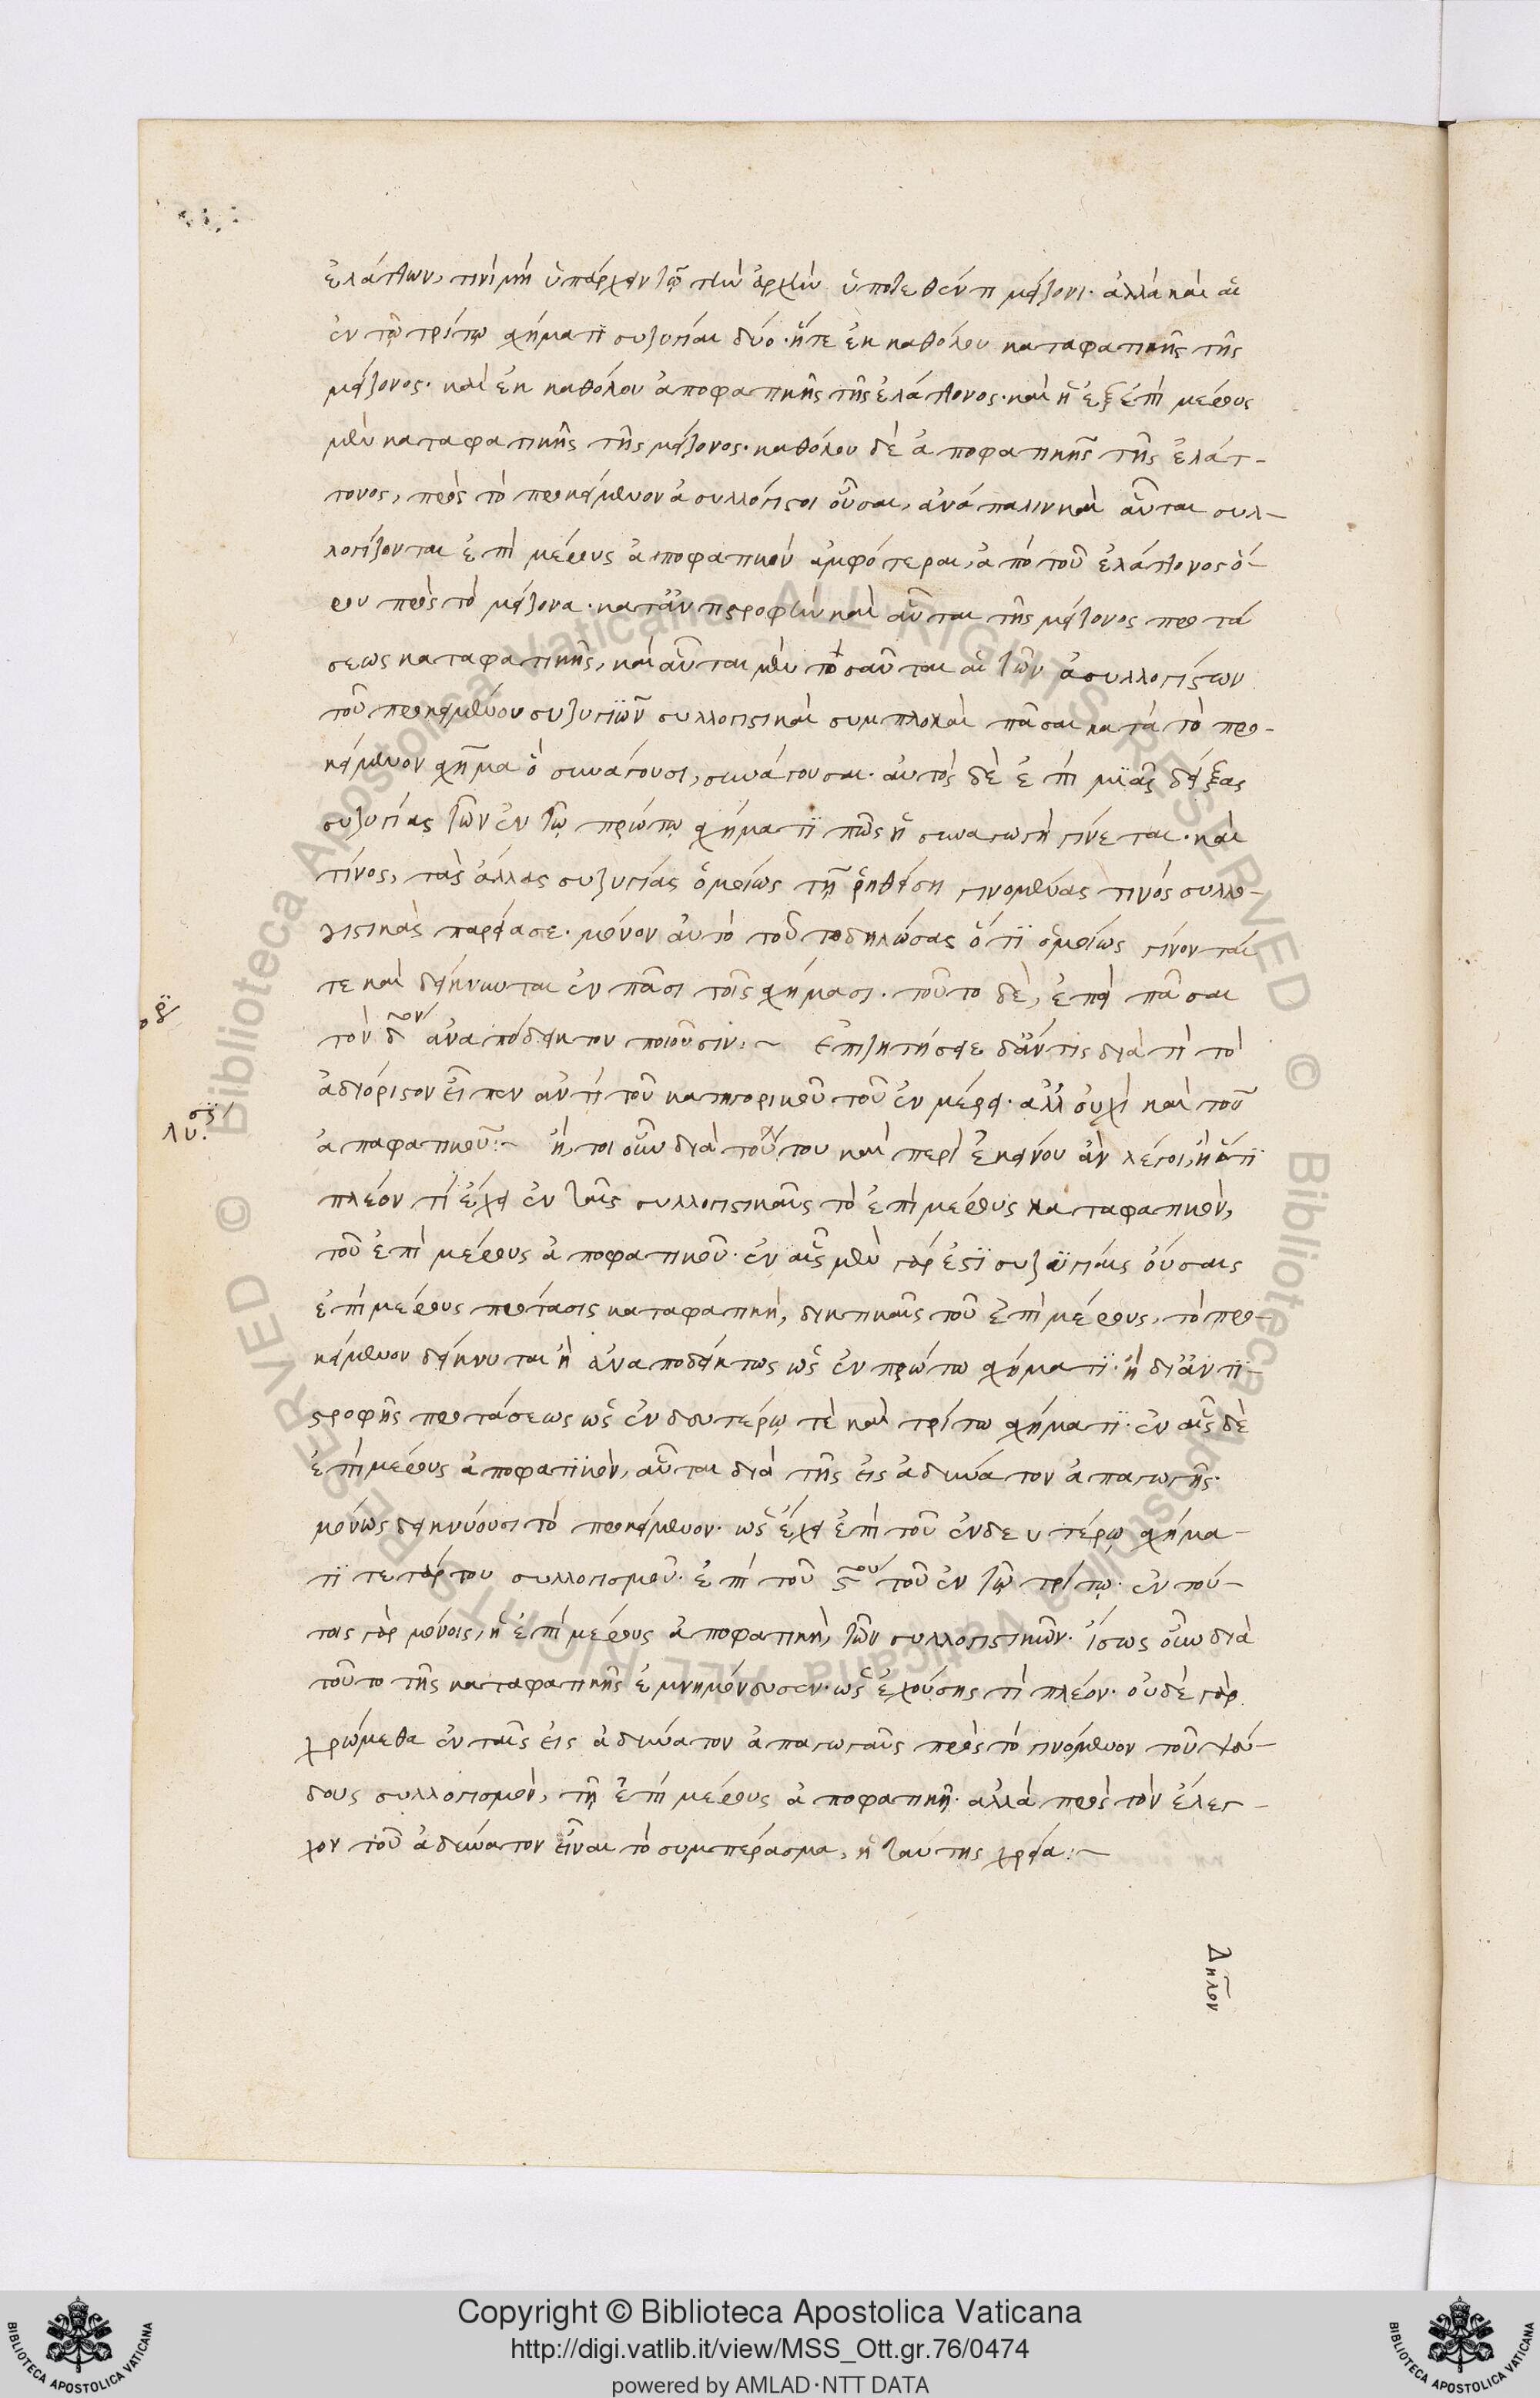 ἐλάττων, τινὶ μὴ ὑπάρχειν τῷ τὴν ἀρχὴν ὑποτεθέντι μείζονι· ἀλλὰ καὶ αἱ
ἐν τῷ τρίτῳ σχήματι συζυγίαι δύο· ἥτε ἐκ καθόλου καταφατικῆς τῆς
μείζονος· καὶ ἐκ καθόλου ἀποφατικῆς τῆς ἐλάττονος· καὶ ἡ ἐξ ἐπὶ μέρους
μὲν καταφατικῆς τῆς μείζονος· καθόλου δὲ ἀποφατικῆς τῆς ἐλάτ-
τονος, πρὸς τὸ προκείμενον ἀσυλλόγιστοι οὖσαι, ἀνάπαλιν καὶ αὗται συλ-
λογίζονται ἐπὶ μέρους ἀποφατικὸν ἀμφότεραι, ἀπὸ τοῦ ἐλάττονος ὅ-
ρου πρὸς τὸ μείζονα· κατ' ἀντιστροφὴν καὶ αὗται τῆς μείζονος προτά
σεως καταφατικῆς, καὶ αὗται μὲν τοσαῦται αἱ τῶν ἀσυλλογίστων
τοῦ προκειμένου συζυγιῶν συλλογιστικαὶ συμπλοκαὶ πᾶσαι κατὰ τὸ προ-
κείμενον σχῆμα ὃ συνάγουσι, συνάγουσαι· αὐτὸς δὲ ἐπὶ μιᾶς δείξας
συζυγίας τῶν ἐν τῷ πρώτῳ σχήματι πῶς ἡ συναγωγὴ γίνεται· καὶ
τίνος, τὰς ἄλλας συζυγίας ὁμοίως τῇ ῥηθείσῃ γινομένας τινὸς συλλο-
γιστικὰς παρείασε· μόνον αὐτὸ τοῦτο δηλώσας ὅτι ὁμοίως γίνονταί
τε καὶ δείκνυνται ἐν πᾶσι τοῖς σχήμασι· τοῦτο δὲ, ἐπεὶ πᾶσαι
τὸν δον ἀναπόδεικτον ποιοῦσιν:~ Ἐπιζητήσειε δ' ἄν τις διὰ τί τὸ
ἀδιόριστον εἶπεν ἀντὶ τοῦ κατηγορικοῦ τοῦ ἐν μέρει· ἀλλ' οὐχὶ καὶ τοῦ
ἀπαφατικοῦ:~ ἤτοι οὖν διὰ τούτου καὶ περὶ ἐκείνου ἂν λέγοι, ἢ ὅτι
πλέον τί ἔχει ἐν ταῖς συλλογιστικαῖς τὸ ἐπὶ μέρους καταφατικὸν,
τοῦ ἐπὶ μέρους ἀποφατικοῦ· ἐν αἷς μὲν γάρ ἐστι συζυγίαις οὔσαις
ἐπὶ μέρους πρότασις καταφατικὴ, δεικτικαῖς τοῦ ἐπὶ μέρους, τὸ προ-
κείμενον δείκνυται ἢ ἀναποδείκτως ὡς ἐν πρώτω σχήματι· ἢ δι' ἀντι-
στροφῆς προτάσεως ὡς ἐν δευτέρῳ τὲ καὶ τρίτω σχήματι· ἐν αἷς δὲ
ἐπὶ μέρους ἀποφατικὸν, αὗται διὰ τῆς εἰς ἀδύνατον ἀπαγωγῆς·
μόνως δεικνύουσι τὸ προκείμενον· ὡς ἔχει ἐπὶ τοῦ ἐν δευτέρῳ σχήμα-
τι τετάρτου συλλογισμοῦ· ἐπὶ τοῦ ϛου τοῦ ἐν τῷ τρίτῳ· ἐν τού-
τοις γὰρ μόνοις, ἡ ἐπὶ μέρους ἀποφατικὴ, τῶν συλλογιστικῶν· ἴσως οὖν διὰ
τοῦτο τῆς καταφατικῆς ἐμνημόνευσεν· ὡς ἐχούσης τὶ πλέον· οὐδὲ γὰρ
χρώμεθα ἐν ταῖς εἰς ἀδύνατον ἀπαγωγαῖς πρὸς τὸ γινόμενον τοῦ ψεύ-
δους συλλογισμὸν, τῇ ἐπὶ μέρους ἀποφατικῇ· ἀλλὰ πρὸς τὸν ἔλεγ-
χον τοῦ ἀδύνατον εἶναι τὸ συμπέρασμα, ἡ ταύτης χρεία:~
Δηλον
Copyright © Biblioteca Apostolica Vaticana
http://digi.vatlib.it/view/MSS_Ott.gr.76/0474
powered by AMLAD·NTT DATA